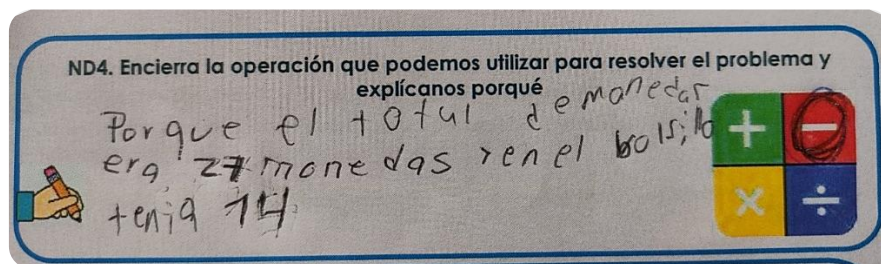 ND4. Encierra la operación que podemos utilizar para resolver el problema y
explícanos porqué
Porque el total de monedas
era 27 monedas y en el bolsillo
tenia 14
+ −
× ÷